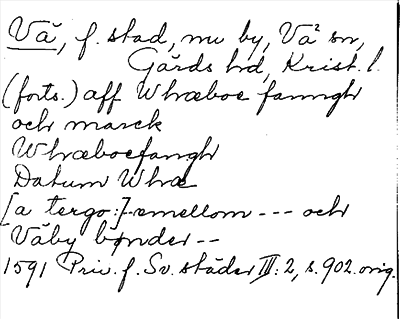 Vä, f. stad, nu by, Vä² sn,
Gärds hd, Krist. l.
(forts.) aff Whæboe fanngh
och marck
Whæboefangh
Datum Whæ
[a tergo:] emellom --- och
Väby bønder --
1591 Priv. f. Sv. städer III: 2, s. 902. orig.